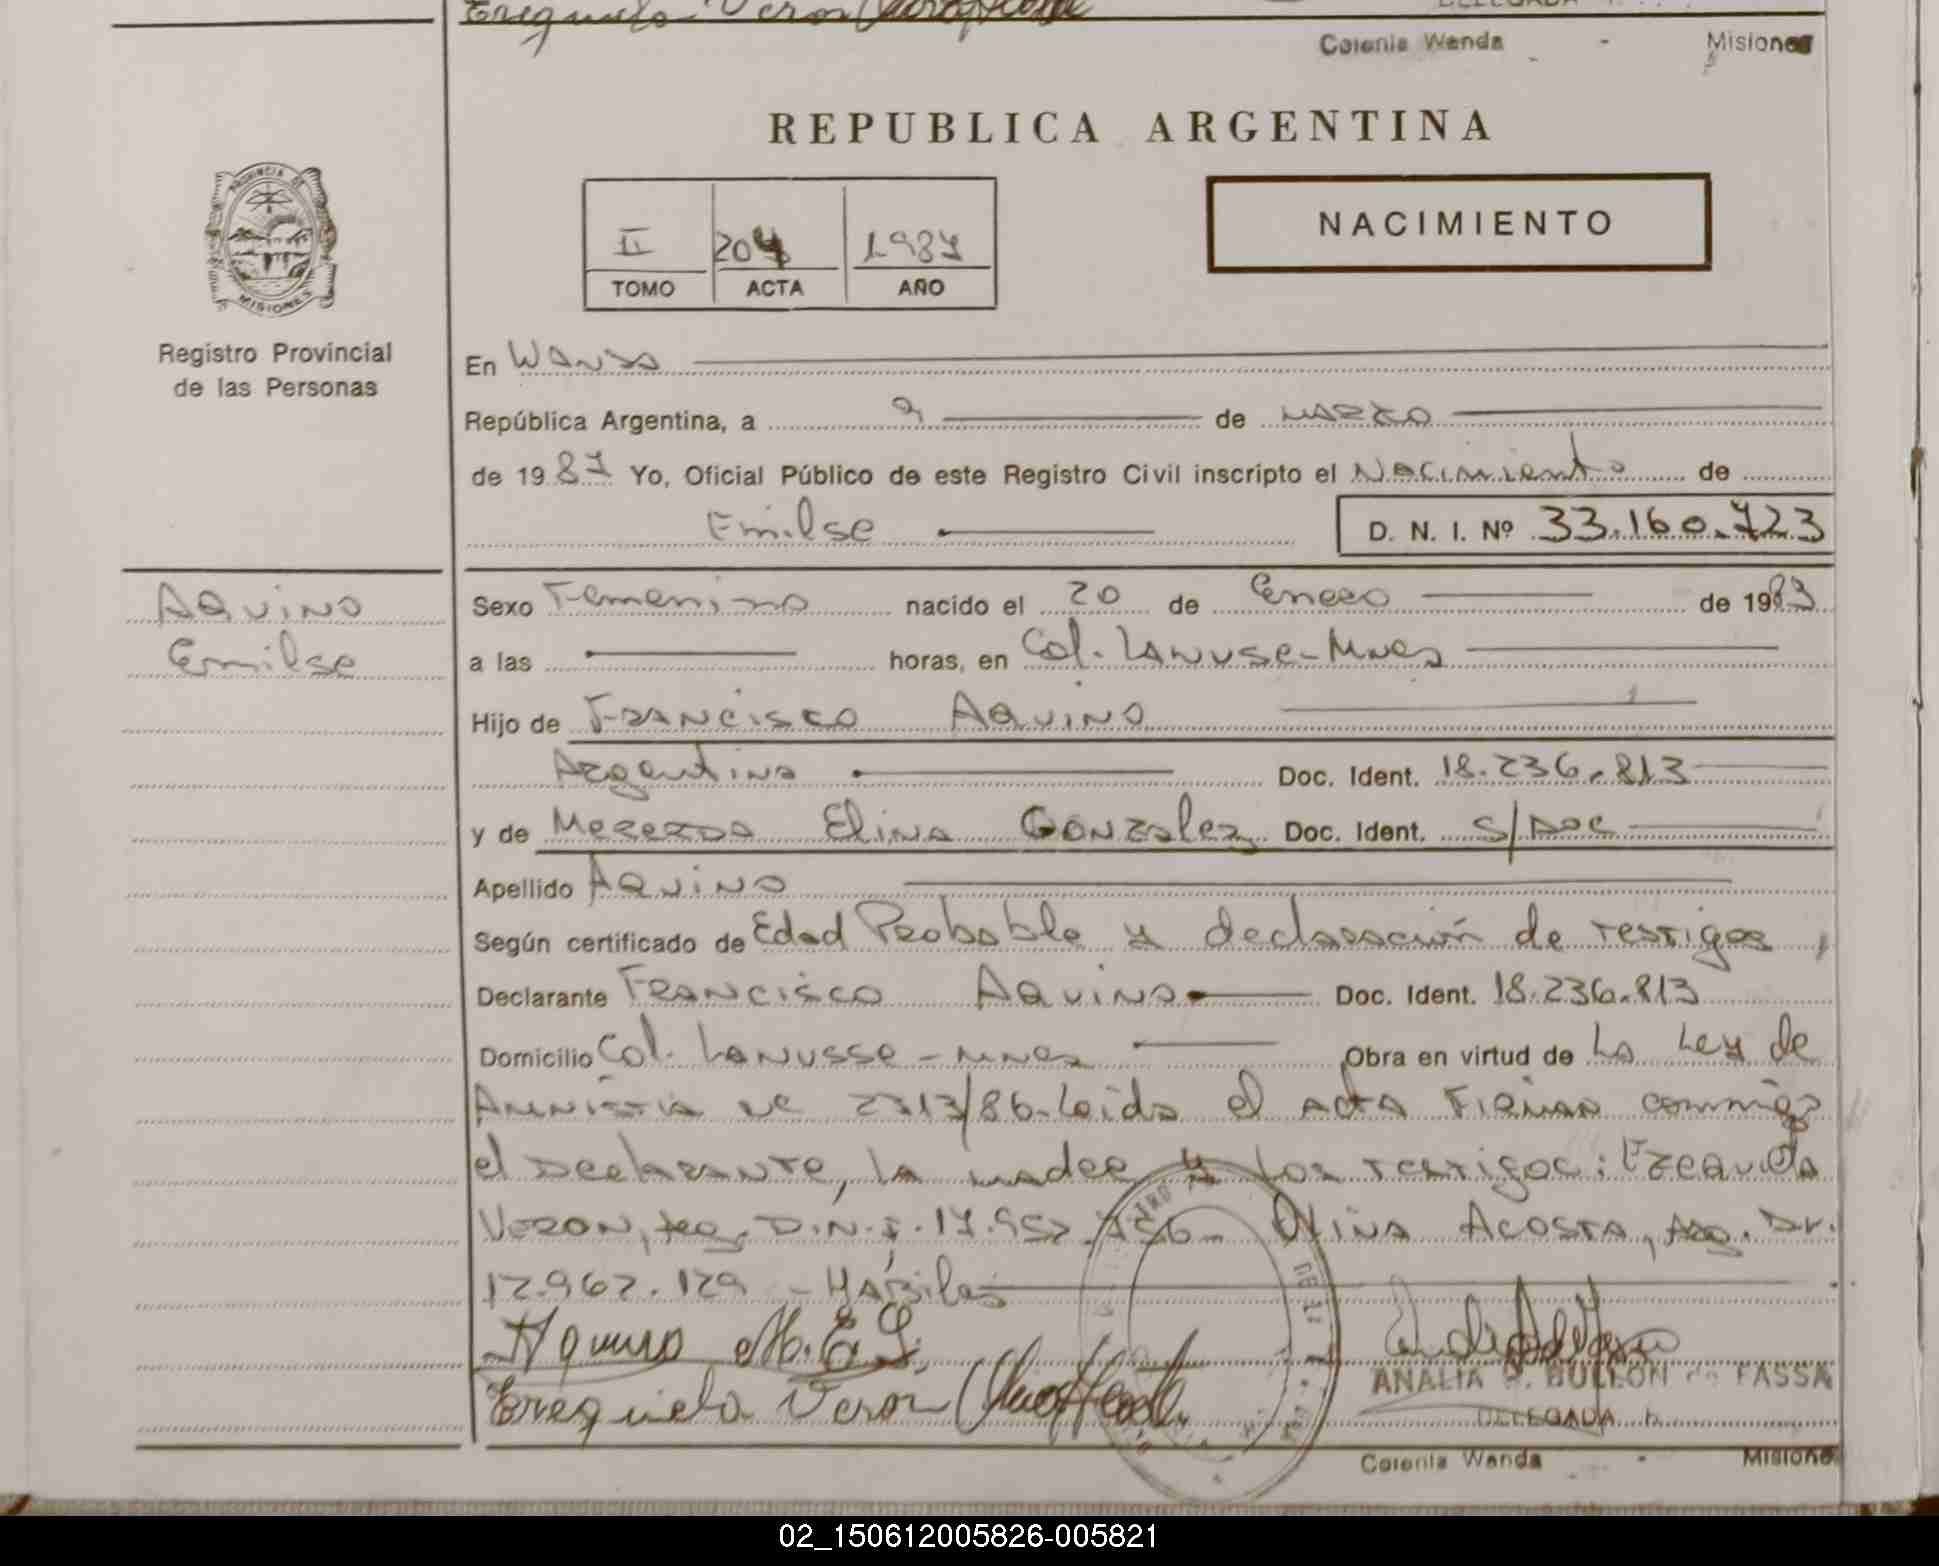 Ezequiela Veron
Colonia Wanda - Misiones
REPUBLICA ARGENTINA
PROVINCIA DE
MISIONES
Registro Provincial
de las Personas
II 204 1987
TOMO ACTA AÑO
NACIMIENTO
En Wanda
República Argentina, a 9 de Marzo
de 1987 Yo, Oficial Público de este Registro Civil inscripto el Nacimiento de
Emilse D. N. I. Nº 33.160.723
Aquino
Emilse
Sexo Femenino nacido el 20 de Enero de 1983
a las horas, en Col. Lanuse - Mnes
Hijo de Francisco Aquino
Argentino Doc. Ident. 18.236.813
y de Mereza Elina Gonzalez Doc. Ident. s/Doc
Apellido Aquino
Según certificado de Edad Probable y declaración de testigos,
Declarante Francisco Aquino Doc. Ident. 18.236.813
Domicilio Col. Lanusse - Mnes Obra en virtud de La Ley de
Amnistia Nº 2313/86. Leida el acta Firman conmigo
el Declarante, la madre y los testigos: Ezequiela
Veron, Arg. D.N.I. 17.952.756 - Olina Acosta, Arg. D.N.
12.967.129 - Habiles
Aquino M.E.G.
Ezequiela Veron
ANALIA BULLON de FASSA
DELEGADA
Colonia Wanda - Misiones
02_150612005826-005821